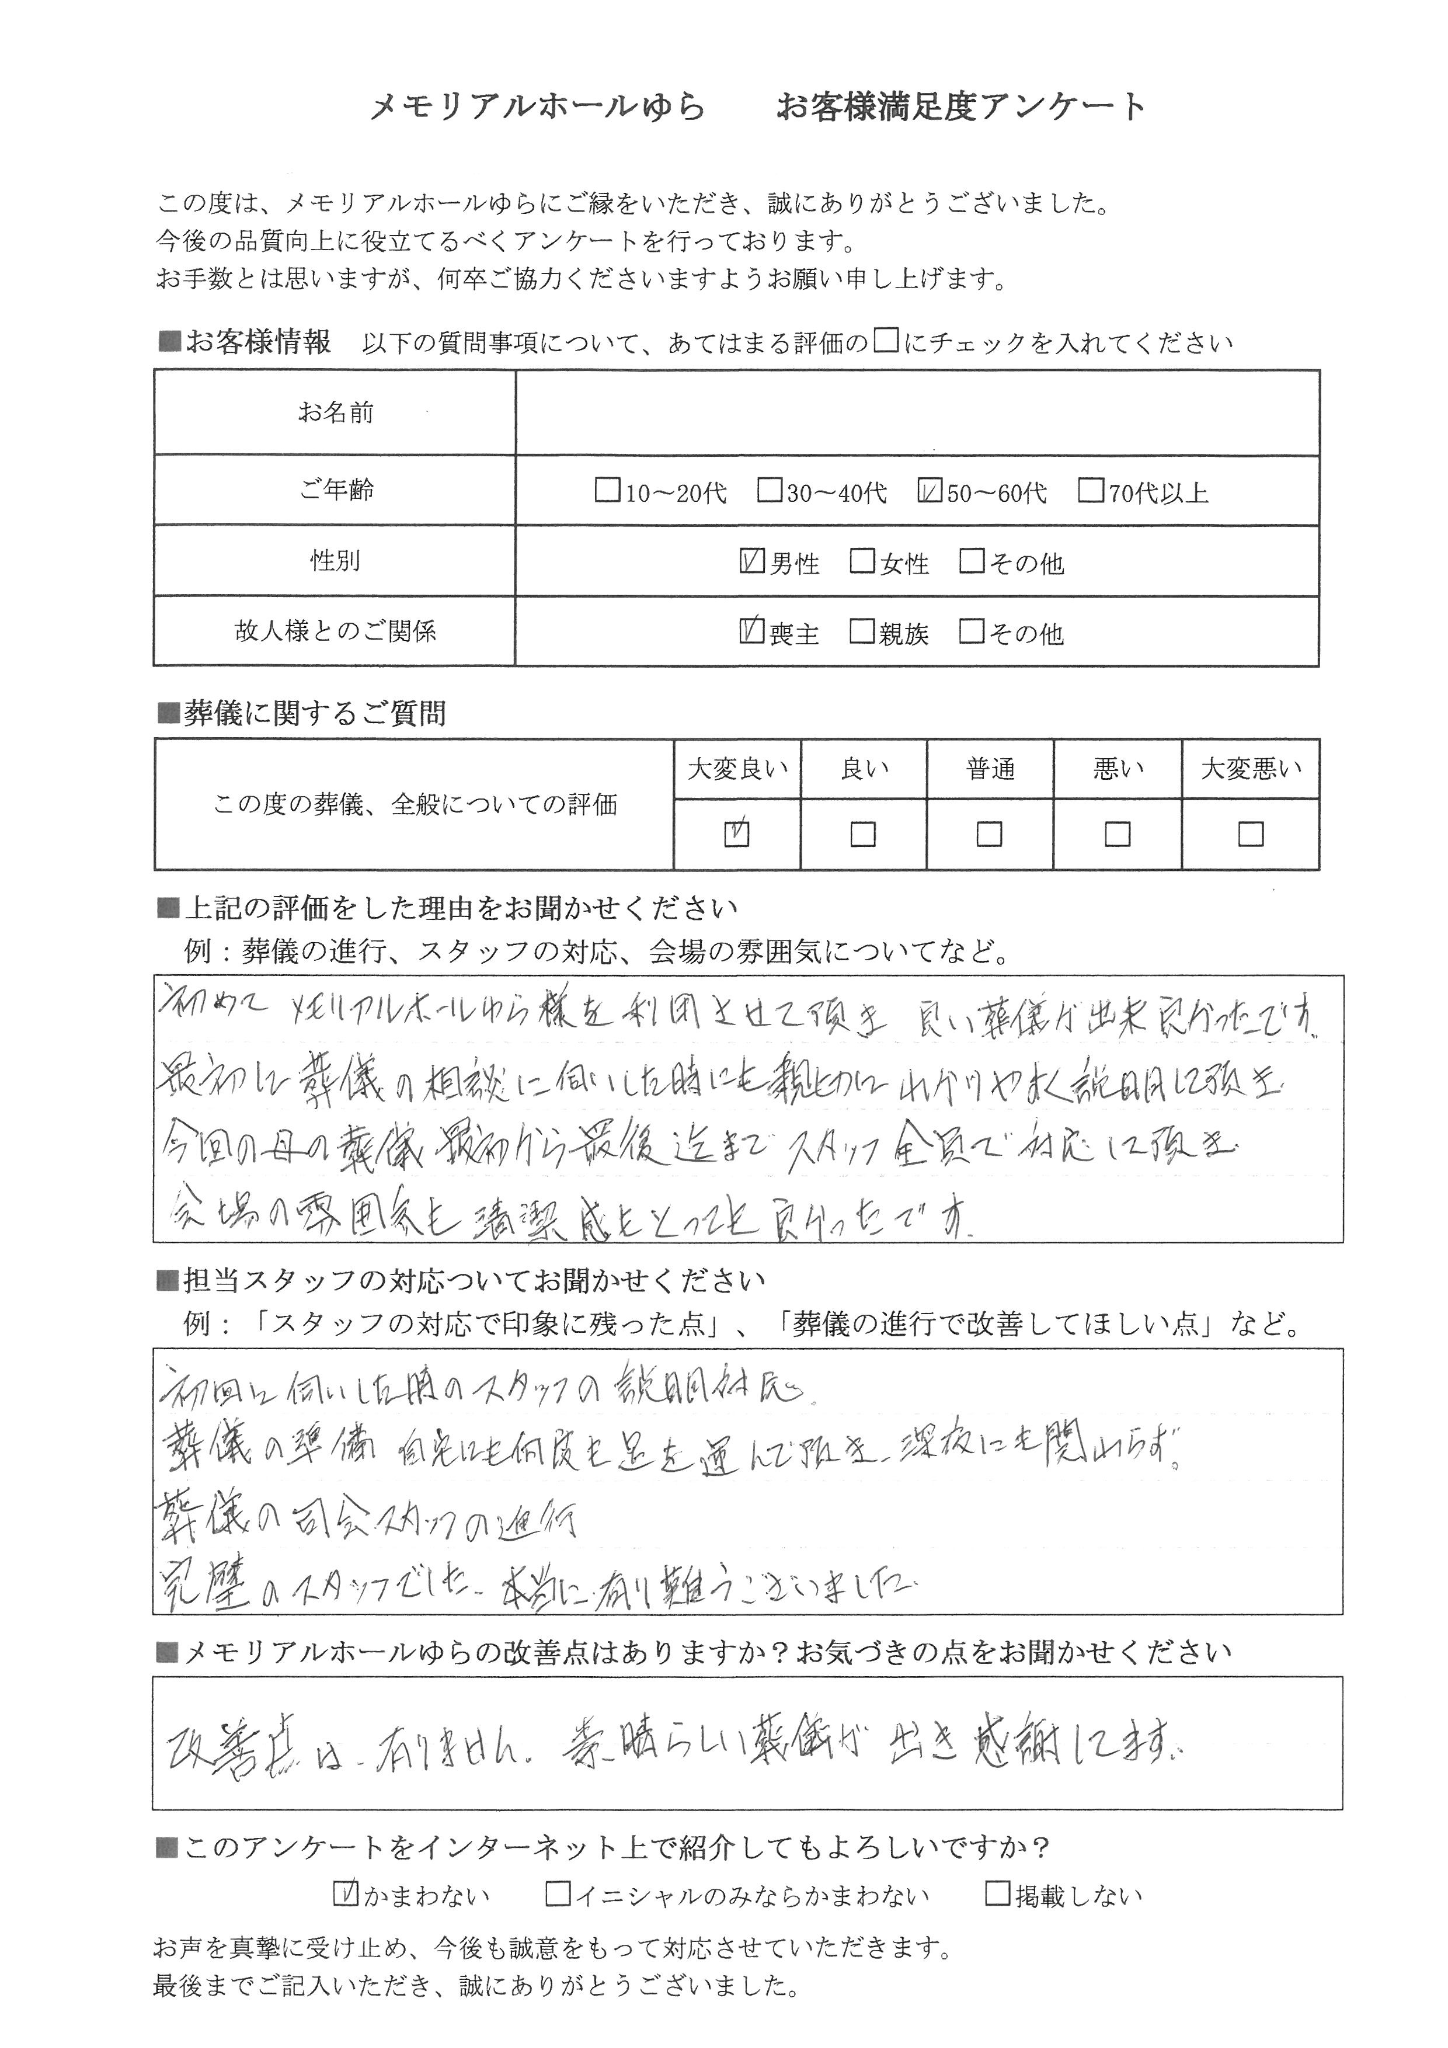 メモリアルホールゆら　　お客様満足度アンケート
この度は、メモリアルホールゆらにご縁をいただき、誠にありがとうございました。
今後の品質向上に役立てるべくアンケートを行っております。
お手数とは思いますが、何卒ご協力くださいますようお願い申し上げます。
■お客様情報　以下の質問事項について、あてはまる評価の□にチェックを入れてください
お名前
ご年齢　□10～20代　□30～40代　☑50～60代　□70代以上
性別　☑男性　□女性　□その他
故人様とのご関係　☑喪主　□親族　□その他
■葬儀に関するご質問
大変良い　良い　普通　悪い　大変悪い
この度の葬儀、全般についての評価
☑　□　□　□　□
■上記の評価をした理由をお聞かせください
例：葬儀の進行、スタッフの対応、会場の雰囲気についてなど。
初めて メモリアルホールゆら様を利用させて頂き 良い葬儀が出来良かったです。
最初に葬儀の相談に伺いした時にも親切にわかりやすく説明して頂き
今回の母の葬儀 最初から最後迄まで スタッフ全員で対応して頂き
会場の雰囲気も清潔感もとっても良かったです。
■担当スタッフの対応ついてお聞かせください
例：「スタッフの対応で印象に残った点」、「葬儀の進行で改善してほしい点」など。
初回に伺いした時のスタッフの説明対応。
葬儀の準備 自宅にも何度も足を運んで頂き、深夜にも関わらず。
葬儀の司会スタッフの進行
完璧のスタッフでした。本当に有り難うございました。
■メモリアルホールゆらの改善点はありますか？お気づきの点をお聞かせください
改善点は、有りません。素晴らしい葬儀が出き感謝してます。
■このアンケートをインターネット上で紹介してもよろしいですか？
☑かまわない　□イニシャルのみならかまわない　□掲載しない
お声を真摯に受け止め、今後も誠意をもって対応させていただきます。
最後までご記入いただき、誠にありがとうございました。